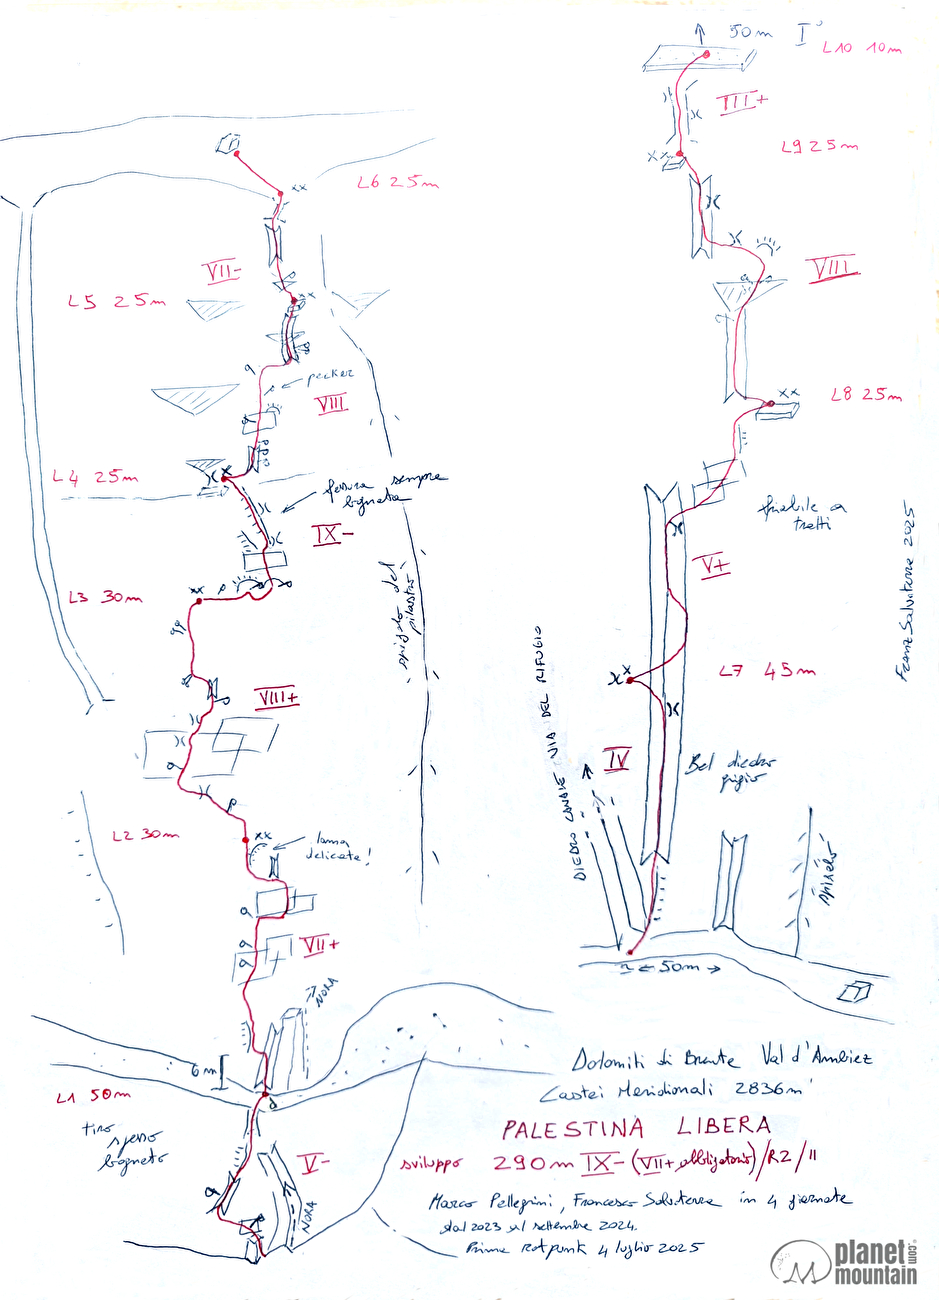 50m I°
L10 10m
III+
L9 25m
L6 25m
VII-
VIII
L5 25m
pecker
VIII
L8 25m
L4 25m
fessura sempre
bagnata
IX-
friabile a
tratti
V+
L3 30m
spigolo del
pilastro
Franz Salvaterra 2025
VIII+
L7 45m
DIEDRO CANALE VIA DEL RIFUGIO
IV
Bel diedro
grigio
L2 30m
lama
delicata!
spigolo
VII+
~ ← 50m →
NORA
6m
L1 50m
tiro
spesso
bagnato
V-
NORA
Dolomiti di Brenta Val d'Ambiez
Castei Meridionali 2836m
PALESTINA LIBERA
sviluppo 290m IX- (VII+ obbligatorio)/R2/II
Marco Pellegrini, Francesco Salvaterra in 4 giornate
dal 2023 al settembre 2024.
Prima rotpunk 4 luglio 2025
planet
mountain
.com